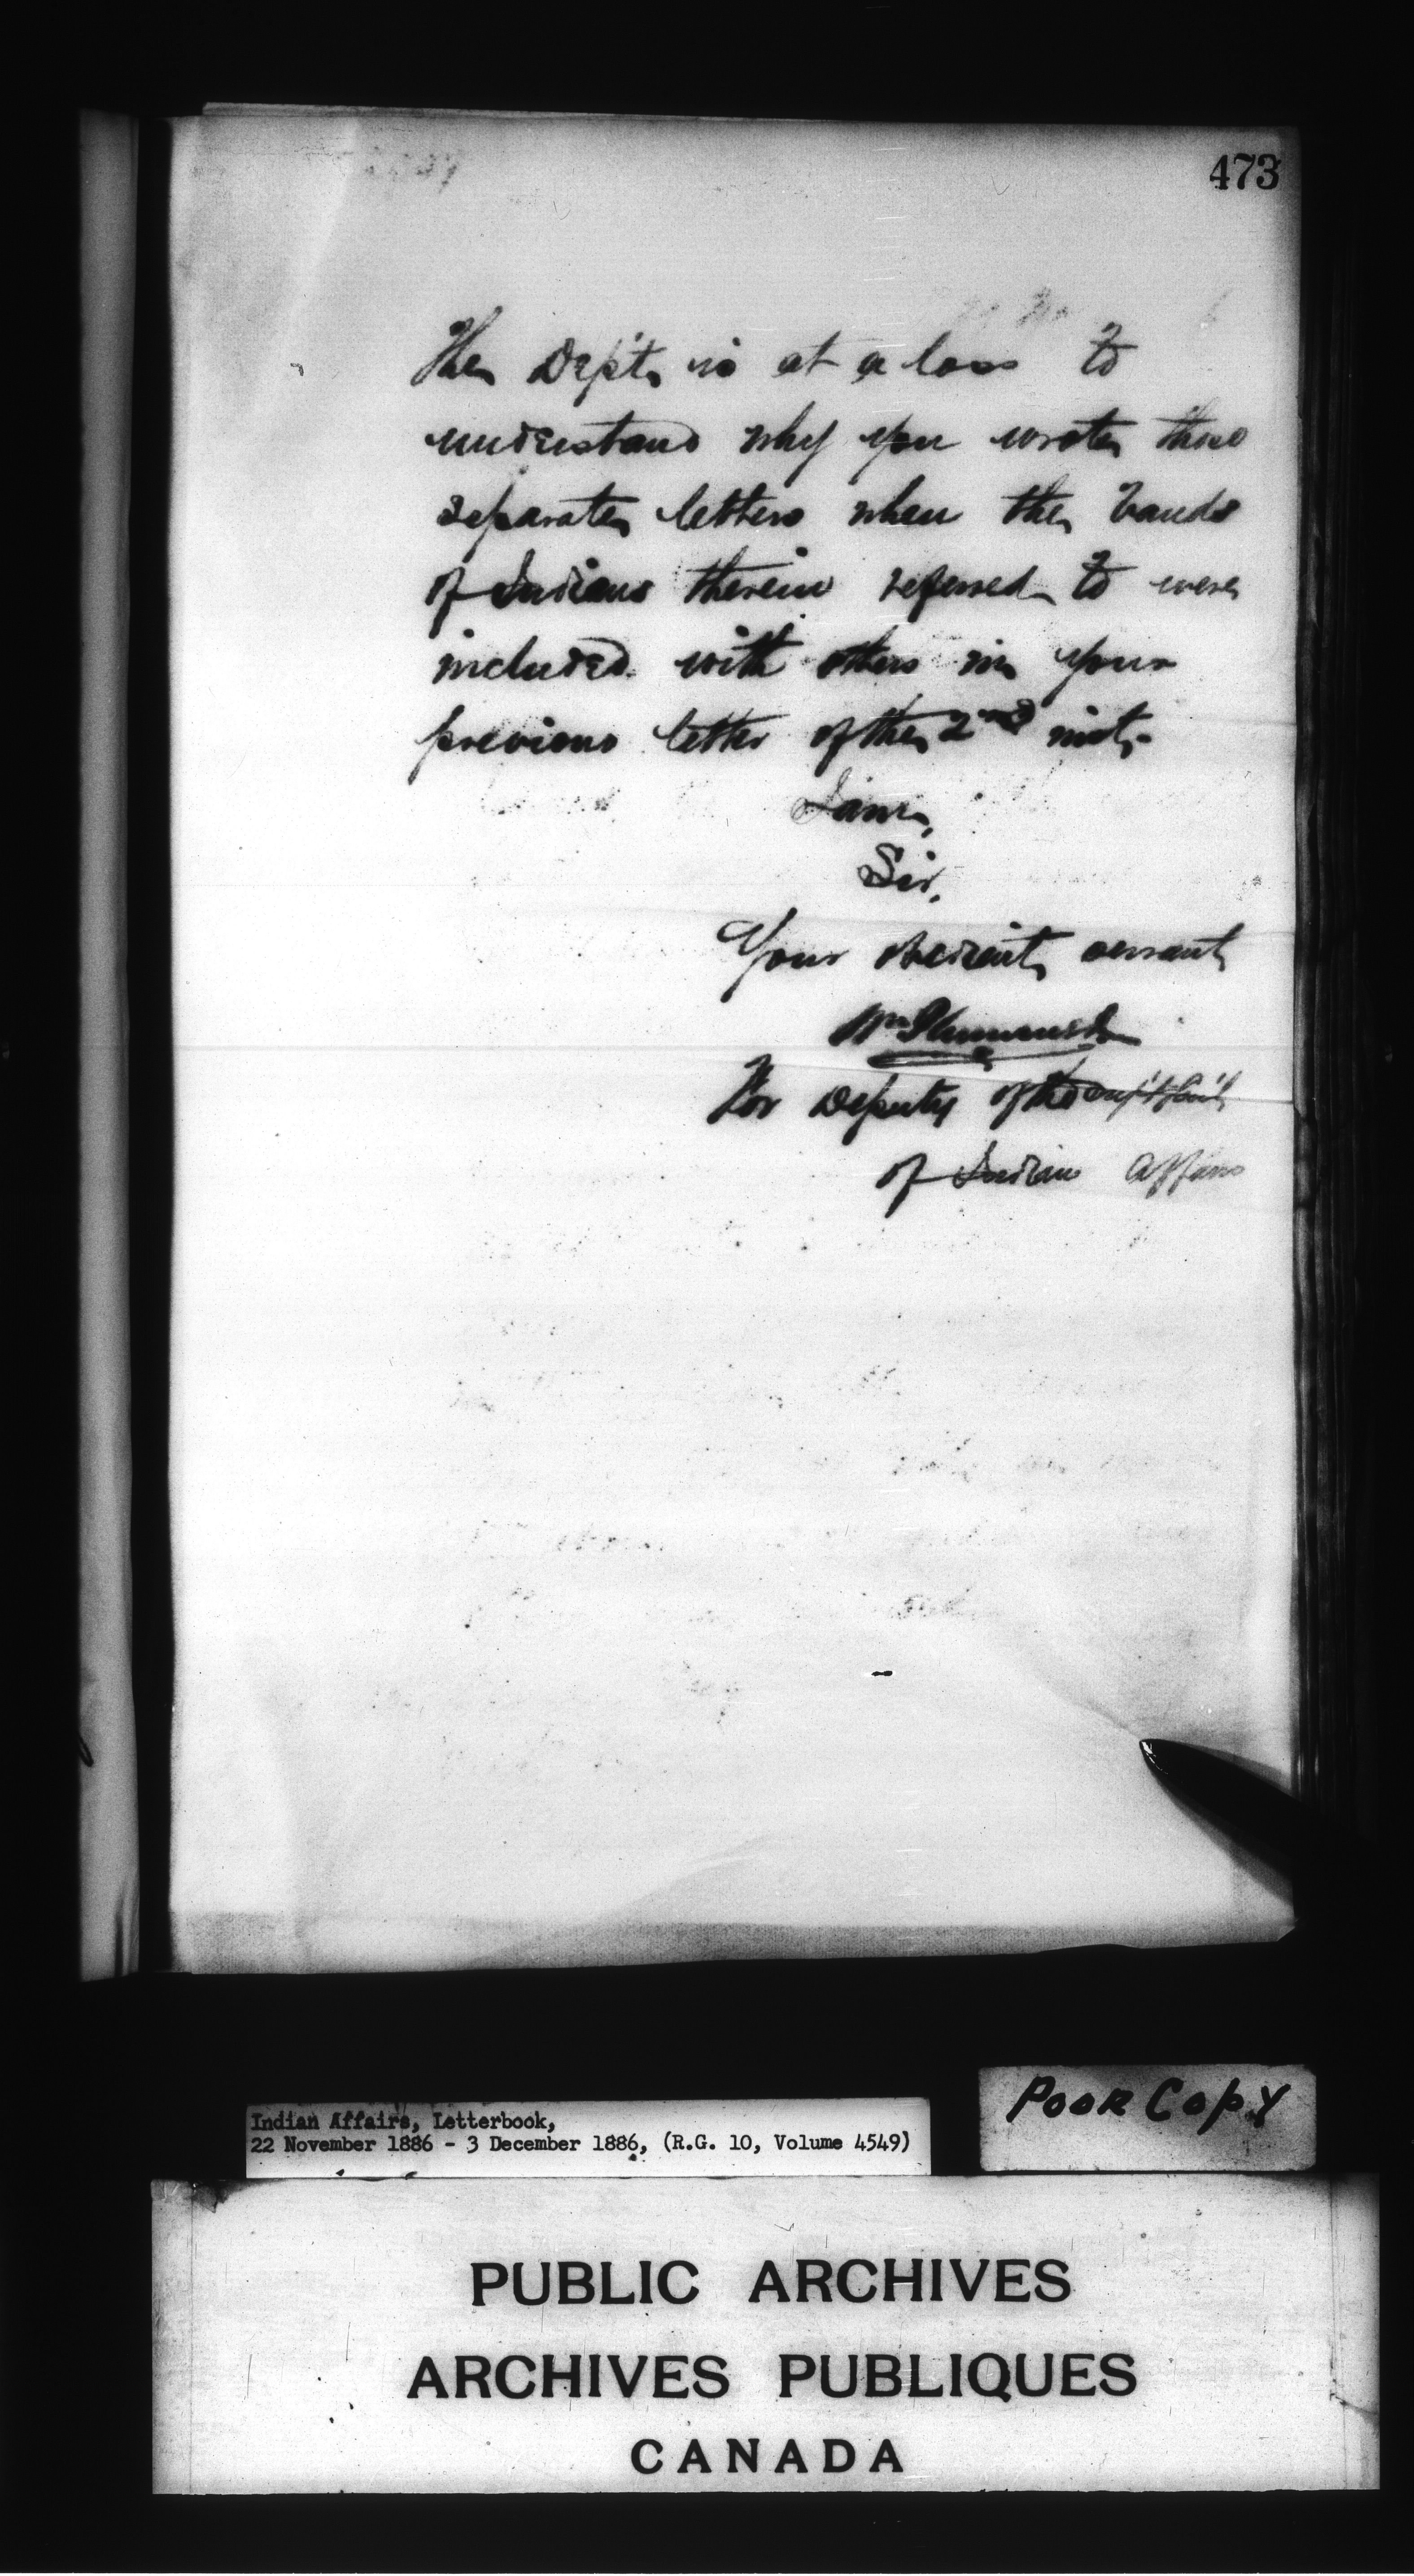 473
The Dep't, is at a loss to
understand why you wrote these
separate letters when the bands
of Indians therein referred to were
included with others in your
previous letter of the 2nd inst.
I am,
Sir,
Your obedient servant
Wm Plummer
For Deputy of the Sup't Gen'l
of Indian Affairs
Poor Copy
Indian Affairs, Letterbook,
22 November 1886 - 3 December 1886, (R.G. 10, Volume 4549)
PUBLIC ARCHIVES
ARCHIVES PUBLIQUES
CANADA